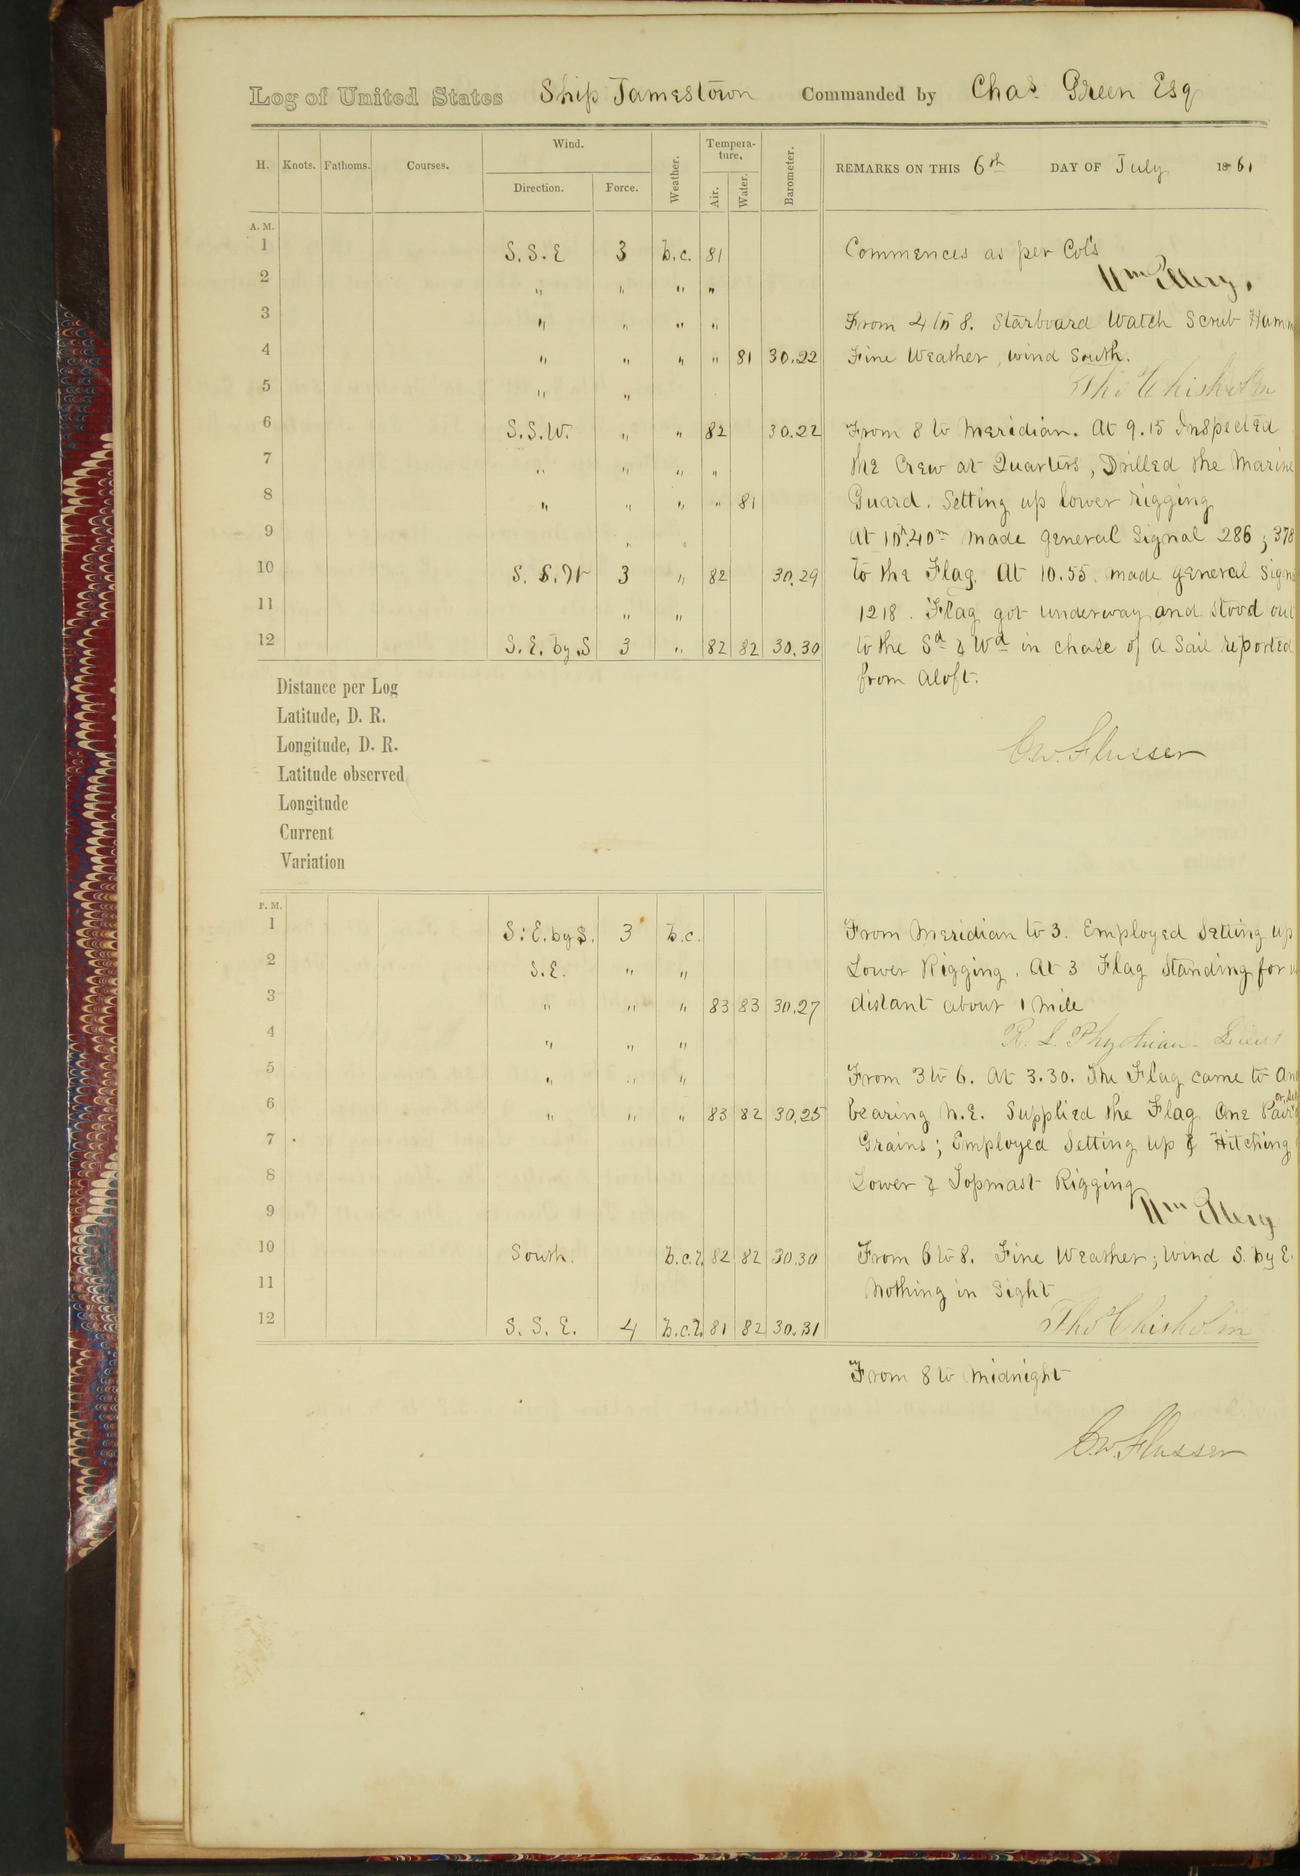 Log of United States Ship Jamestown Commanded by Chas Green Esq
H. Knots. Fathoms. Courses. Wind. Direction. Force. Weather. Tempera-ture. Air. Water. Barometer. REMARKS ON THIS 6th DAY OF July 1861
A. M.
1 S. S. E 3 b.c. 81 Commences as per Cols
2 " " " " Wm Ellery.
3 " " " " From 4 to 8. Starboard Watch Scrub
4 " " " " 81 30.22 Fine Weather, wind South.
5 " " Tho Chisholm
6 S.S.W. " " 82 30.22 From 8 to Meridian. At 9.15 Inspected
7 " " " " the Crew at Quarters, Drilled the Marine
8 " " " " 81 Guard. Setting up lower rigging
9 " " at 10h.40m made general Signal 286; 378
10 S. S. W 3 " 82 30.29 to the Flag. At 10.55. made general
11 " " 1218. Flag got underway and stood out
12 S. E. by S 3 " 82 82 30.30 to the Sd & Wd in chase of a Sail reported
from aloft.
Distance per Log
Latitude, D. R.
Longitude, D. R.
C.W. Flusser
Latitude observed
Longitude
Current
Variation
P. M.
1 S. E. by S. 3 b.c. From Meridian to 3. Employed Setting up
2 S.E. " " Lower Rigging. At 3 Flag Standing for
3 " " " 83 83 30.27 distant about 1 mile
4 " " " R. L. Phythian Lieut
5 " " " From 3 to 6. At 3.30. The Flag came to
6 " " " 83 82 30.25 bearing N.E. Supplied the Flag One Pair
7 Grains; Employed Setting up & Hitching
8 Lower & Topmast Rigging
9 Wm Ellery
10 South. b.c.l. 82 82 30.30 From 6 to 8. Fine Weather; Wind S. by E.
11 Nothing in Sight
12 S. S. E. 4 b.c.l. 81 82 30.31 Tho Chisholm
From 8 to Midnight
C.W. Flusser